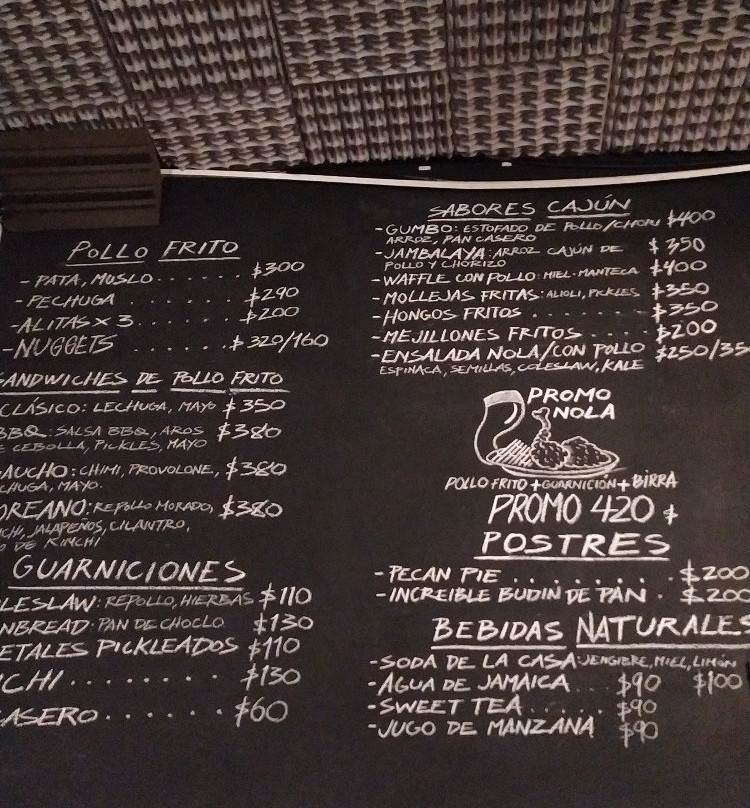 POLLO FRITO
- PATA, MUSLO....... $300
- PECHUGA ....... $290
- ALITAS X 3....... $200
- NUGGETS ....... $320/160
SANDWICHES DE POLLO FRITO
CLÁSICO: LECHUGA, MAYO $350
BBQ: SALSA BBQ, AROS $380
E CEBOLLA, PICKLES, MAYO
AUCHO: CHIMI, PROVOLONE, $380
CHUGA, MAYO.
OREANO: REPOLLO MORADO, $380
CHI, JALAPEÑOS, CILANTRO,
O DE KIMCHI
GUARNICIONES
LESLAW: REPOLLO, HIERBAS $110
NBREAD: PAN DE CHOCLO $130
ETALES PICKLEADOS $110
CHI........ $130
ASERO....... $60
SABORES CAJÚN
- GUMBO: ESTOFADO DE POLLO/CHORI $400
ARROZ, PAN CASERO
- JAMBALAYA: ARROZ CAJÚN DE $350
POLLO Y CHORIZO
- WAFFLE CON POLLO: MIEL-MANTECA $400
- MOLLEJAS FRITAS: ALIOLI, PICKLES $350
- HONGOS FRITOS ....... $350
- MEJILLONES FRITOS .... $200
- ENSALADA NOLA/CON POLLO $250/35
ESPINACA, SEMILLAS, COLESLAW, KALE
PROMO
NOLA
POLLO FRITO + GUARNICIÓN + BIRRA
PROMO 420 $
POSTRES
- PECAN PIE ........ $200
- INCREIBLE BUDIN DE PAN . $200
BEBIDAS NATURALES
- SODA DE LA CASA: JENGIBRE, MIEL, LIMÓN $100
- AGUA DE JAMAICA ... $90
- SWEET TEA ..... $90
- JUGO DE MANZANA $90